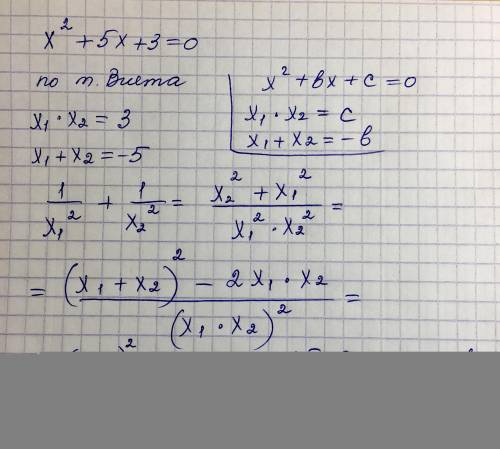 x² + 5x + 3 = 0
по т. Виета
x₁ · x₂ = 3
x₁ + x₂ = -5
x² + bx + c = 0
x₁ · x₂ = c
x₁ + x₂ = -b
1/x₁² + 1/x₂² = (x₂² + x₁²)/(x₁² · x₂²) =
= ((x₁ + x₂)² - 2x₁ · x₂)/(x₁ · x₂)² =